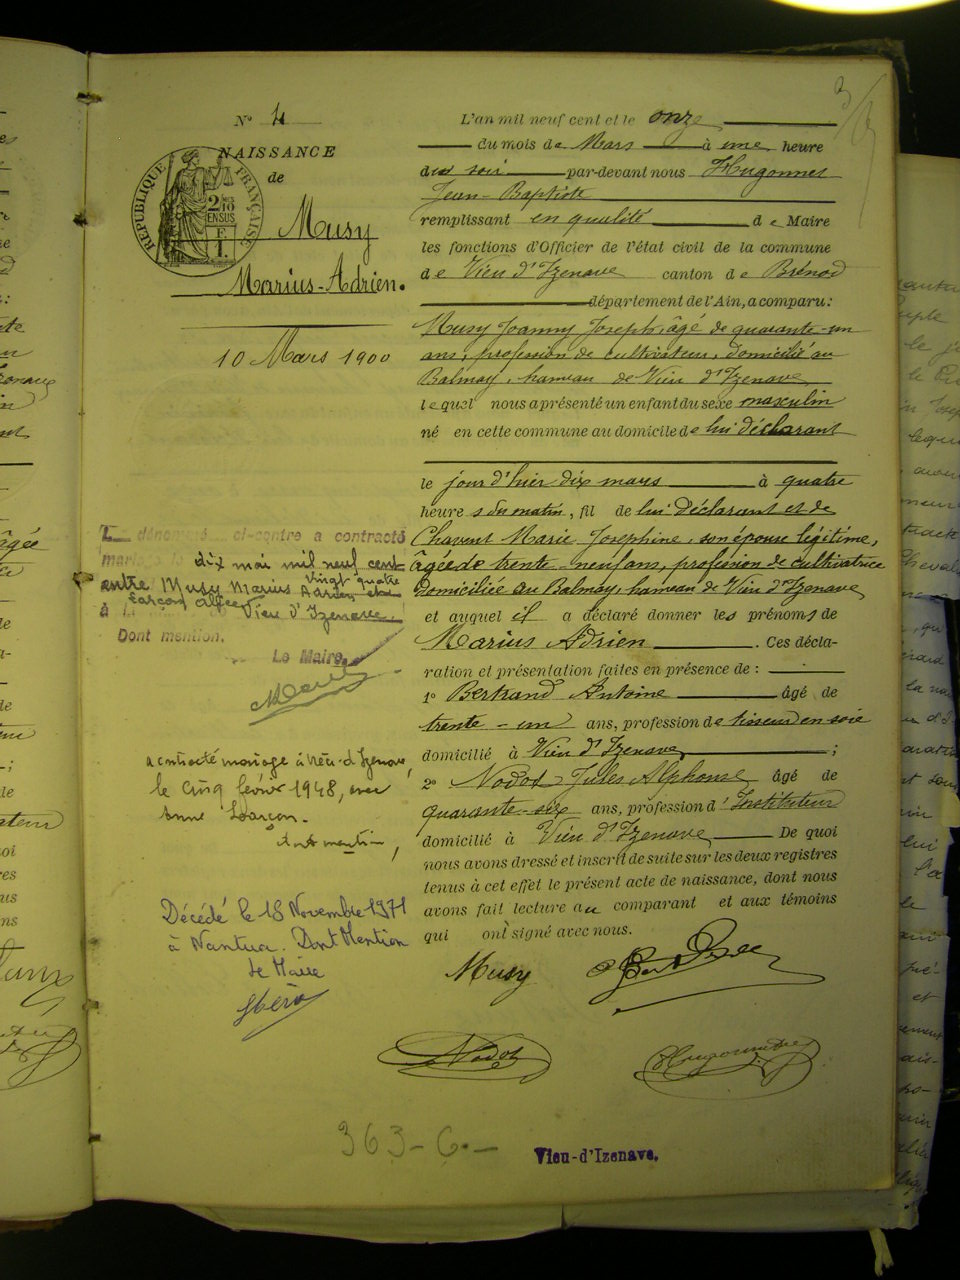 3
N° 4
NAISSANCE
de
Musy
Marius-Adrien.
10 Mars 1900
REPUBLIQUE FRANÇAISE
2/10
EN SUS
E
1.
L'an mil neuf cent et le onze
du mois de Mars à une heure
du soir par-devant nous Hugonnet
Jean-Baptiste
remplissant en qualité de Maire
les fonctions d'Officier de l'état civil de la commune
de Vieu d'Izenave canton de Brénod
département de l'Ain, a comparu:
Musy Joanny Joseph, âgé de quarante-un
ans, profession de cultivateur, domicilié au
Balmay, hameau de Vieu d'Izenave
lequel nous a présenté un enfant du sexe masculin
né en cette commune au domicile de lui déclarant
le jour d'hier dix mars à quatre
heures du matin, fil de lui déclarant et de
Chavent Marie Josephine, son épouse légitime,
âgée de trente-neuf ans, profession de cultivatrice
domiciliée au Balmay, hameau de Vieu d'Izenave
et auquel il a déclaré donner les prénoms de
Marius Adrien. Ces décla-
ration et présentation faites en présence de :
1° Bertrand Antoine âgé de
trente-un ans, profession de tisseur en soie
domicilié à Vieu d'Izenave ;
2° Nodot Jules Alphonse âgé de
quarante-six ans, profession d'Instituteur
domicilié à Vieu d'Izenave De quoi
nous avons dressé et inscrit de suite sur les deux registres
tenus à cet effet le présent acte de naissance, dont nous
avons fait lecture au comparant et aux témoins
qui ont signé avec nous.
Musy
Nodot
Hugonnet
L dénommé ci-contre a contracté
mariage le dix mai mil neuf cent
vingt quatre
entre Musy Marius Adrien et
à Vieu d'Izenave
Dont mention.
Le Maire,
a contracté mariage à Vieu-d'Izenave,
le cinq février 1948, avec
Anne Larçon.
dont mention,
Décédé le 18 Novembre 1971
à Nantua. Dont Mention
Le Maire
363-6-
Vieu-d'Izenave.